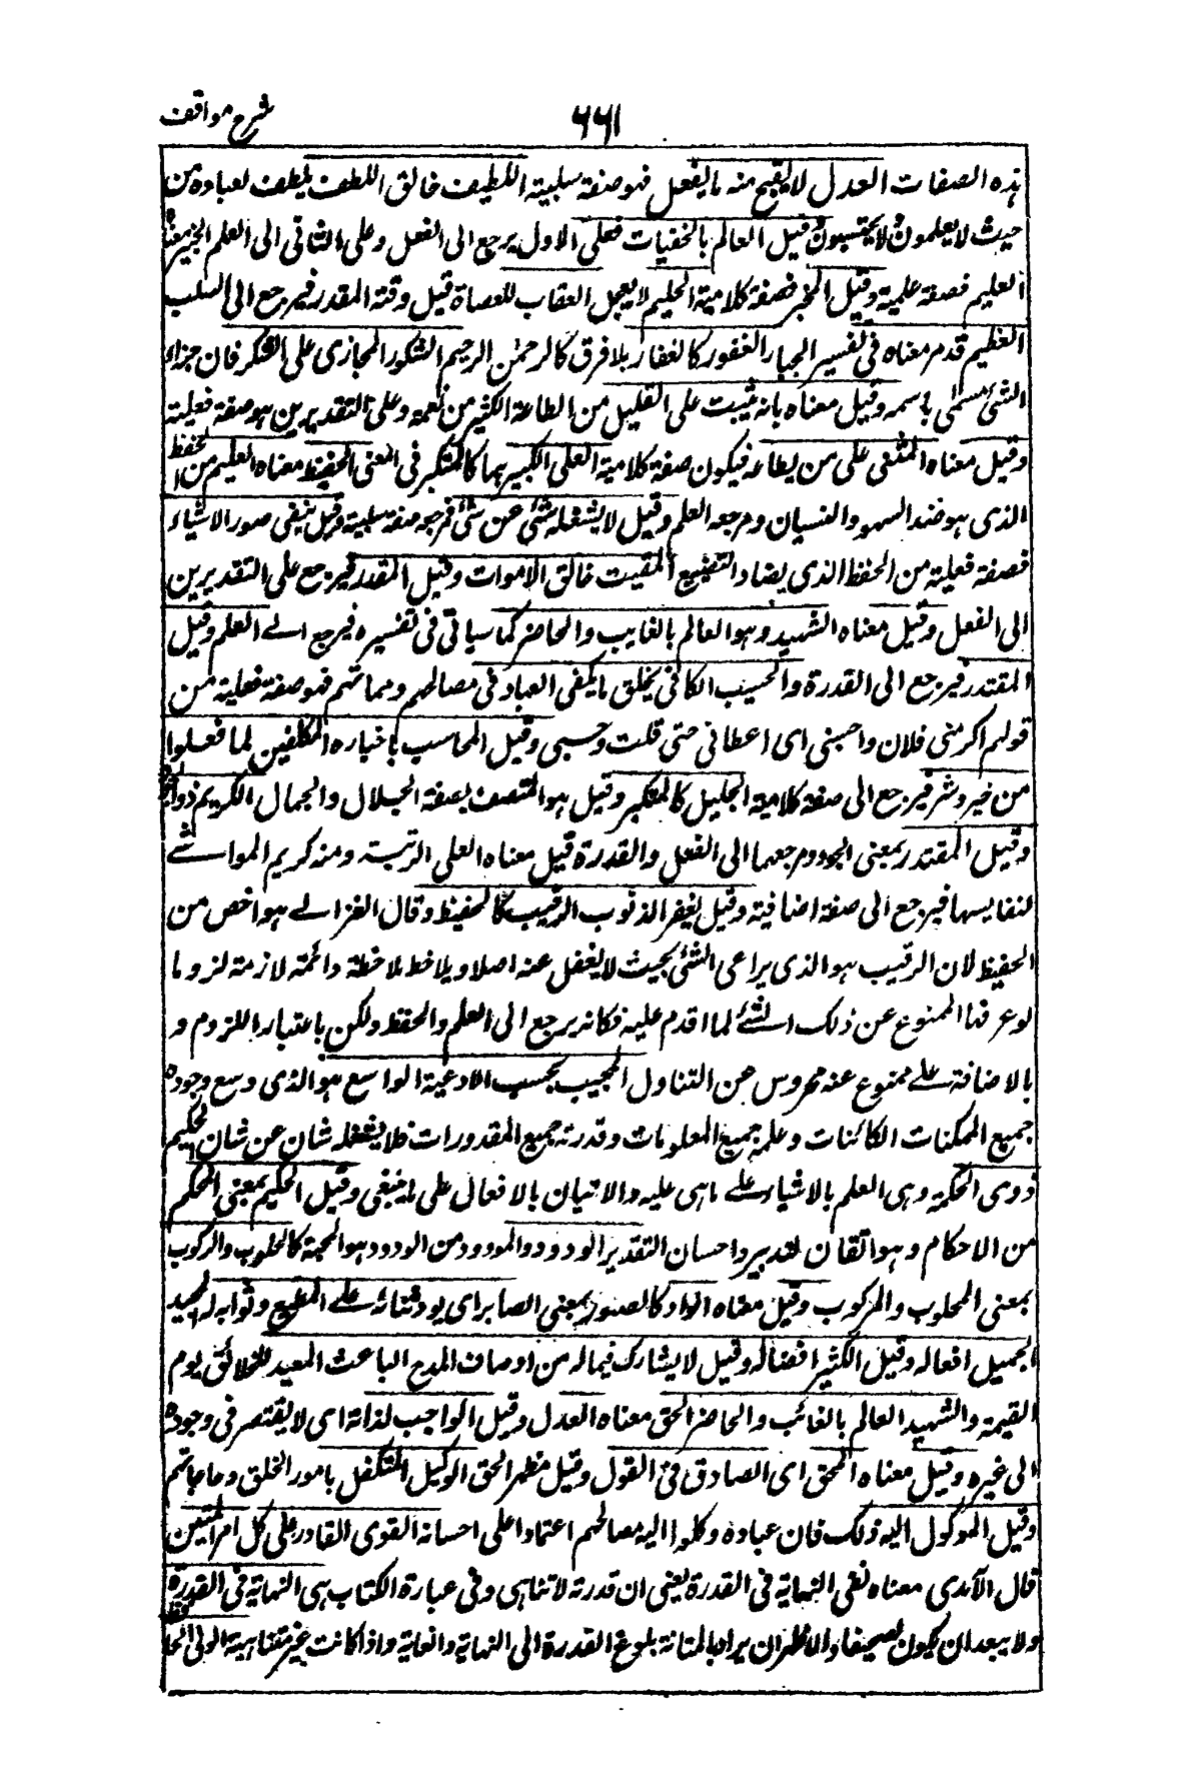 شرح مواقف
٦٦١
هذه الصفات العدل لا يقبح منه ما يفعل فهو صفة سلبية اللطيف خالق اللطف يلطف لعباده من
حيث لا يعلمون لا يحتسبون قيل العالم بالخفيات فعلى الاول يرجع الى الفعل وعلى الثاني الى العلم الخبير معناه
العليم فصفة علمية وقيل المخبر فصفة كلامية الحليم لا يعجل العقاب للعصاة قيل وقته المقدر فيرجع الى السلب
العظيم قدم معناه في تفسير الجبار الغفور كالغفار بلا فرق كالرحمن الرحيم الشكور المجازى على الشكر فان جزاء
الشئ مسمى باسمه وقيل معناه بانه يثيب على القليل من الطاعة الكثير من نعمه وعلى التقديرين هو صفة فعلية
وقيل معناه المثنى على من يطاعه فيكون صفة كلامية العلى الكبير هما كالمتكبر فى المعنى الحفيظ معناه العليم من الحفظ
الذى هو ضد السهو والنسيان ومرجعه العلم وقيل لا يشغله شئ عن شئ فمرجعه صفة سلبية وقيل يبقى صور الاشياء
فصفة فعلية من الحفظ الذى يضاد التضييع المقيت خالق الاموات وقيل المقدر فيرجع على التقديرين
الى الفعل وقيل معناه الشهيد وهو العالم بالغايب والحاضر كما سياتى فى تفسيره فيرجع الى العلم وقيل
المقتدر فيرجع الى القدرة والحسيب الكافى يخلق ما يكفى العباد فى مصالحهم ومهماتهم فهو صفة فعلية من
قولهم اكرمنى فلان واحسبنى اى اعطانى حتى قلت وحسبى وقيل المحاسب باخباره المكلفين لما فعلوا
من خير وشر فيرجع الى صفة كلامية الجليل كالمتكبر وقيل هو المتصف بصفة الجلال والجمال الكريم ذو الجود
وقيل المقتدر بمعنى الجود ومرجعهما الى الفعل والقدرة قيل معناه العلى الرتبة ومنه كريم المواشى
لنفايسها فيرجع الى صفة اضافية وقيل يغفر الذنوب الرقيب كالحفيظ وقال الغزالى هو اخص من
الحفيظ لان الرقيب هو الذى يراعى الشئ بحيث لا يغفل عنه اصلا ويلاحظ ملاحظة دائمة لازمة لزوما
لو عرفها الممنوع عن ذلك الشئ لما اقدم عليه فكانه يرجع الى العلم والحفظ ولكن باعتبار اللزوم و
بالاضافة على ممنوع عنه محروس عن التناول المجيب يجيب الادعية الواسع هو الذى وسع وجوده
جميع الممكنات الكائنات وعلمه جميع المعلومات وقدرته جميع المقدورات فلا يشغله شان عن شان الحكيم
ذوى الحكمة وهى العلم بالاشياء على ما هى عليه والاتيان بالافعال على ما ينبغى وقيل الحكيم بمعنى المحكم
من الاحكام وهو اتقان التدبير واحسان التقدير الودود والمودود من الودود هو المحبة كالحلوب والركوب
بمعنى المحلوب والمركوب وقيل معناه الواد كالصبور بمعنى الصابر اى يود ثنائه على المطيع وثوابه له المجيد
الجميل افعاله وقيل الكثير افضاله وقيل لا يشارك فيما له من اوصاف المدح الباعث المعيد للخلائق يوم
القيمة والشهيد العالم بالغائب والحاضر الحق معناه العدل وقيل الواجب لذاته اى لا يفتقر فى وجوده
الى غيره وقيل معناه المحق اى الصادق فى القول وقيل مظهر الحق الوكيل المتكفل بامور الخلق وحاجاتهم
وقيل الموكول اليه ذلك فان عباده وكلوا اليه مصالحهم اعتمادا على احسانه القوى القادر على كل امر المتين
قال الآمدى معناه نفى النهاية فى القدرة يعنى ان قدرته لا تتناهى وفى عبارة الكتاب هى النهاية فى القدرة
ولا يبعد ان يكون تصحيفا والاظهر ان يراد بالمتانة بلوغ القدرة الى النهاية والغاية واذا كانت غير متناهية الولى الحافظ